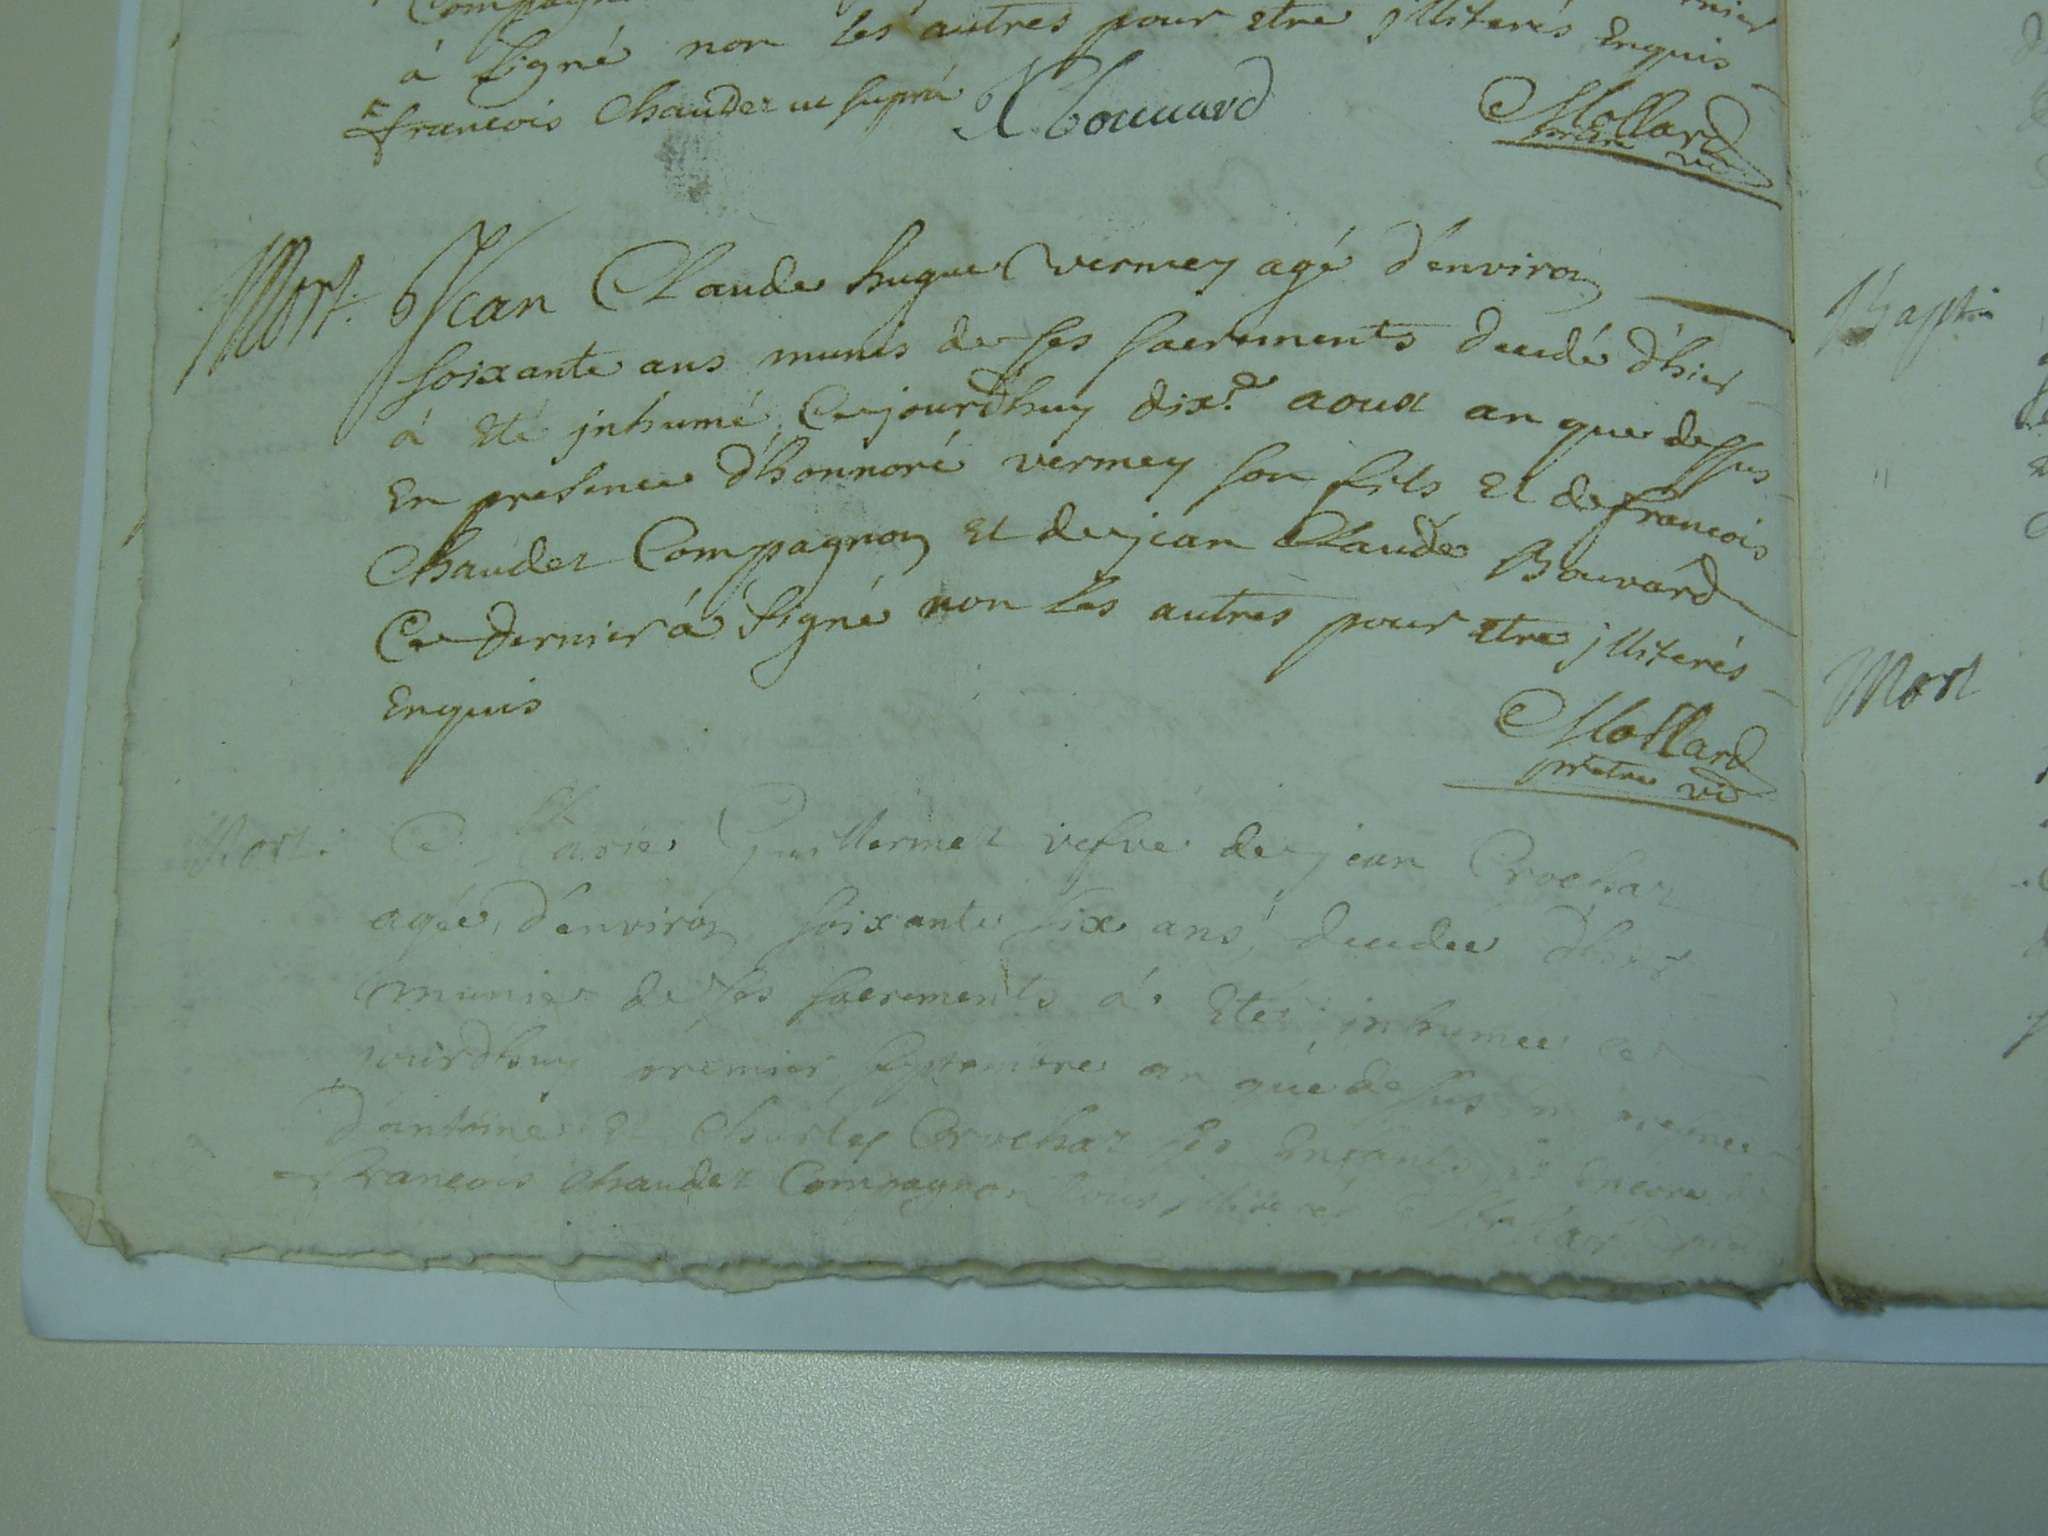 à signé non les autres pour etre jlliterés Enquis
françois Chaudet ut supra Bouuard Mollard
Mort. Jean Claude hugue vermey agé d'environ
soixante ans munis de ses sacrements decedé d'hier
à eté jnhumé Cejourdhuy dix.e aoust an que dessus
En presence d'honnoré vermey son fils et de françois
Chaudet Compagnon et de jean Claude Bouvard
Ce dernier à signé non les autres pour etre jlliterés
Enquis
Mollard
pretre vic
Mort. Marie Guillermet vefve de jean Crochat
agée d'environ soixante six ans decedée d'hier
munie de ses sacrements à eté inhumée ce
jourdhuy premier septembre an que dessus en presence
d'antoine et Charles Crochat ses Enfants et encore
françois Chaudet Compagnon tous jlliterés
Bapt
Mort